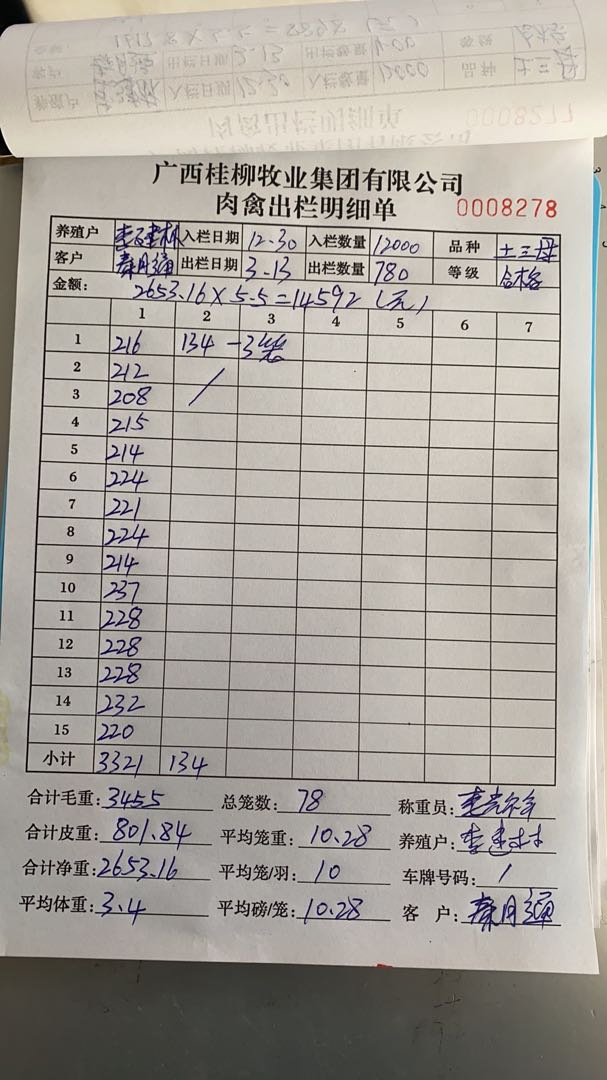 广西桂柳牧业集团有限公司
肉禽出栏明细单 0008278
养殖户 入栏日期 12.30 入栏数量 12000 品种 土三母
客户 秦月通 出栏日期 3.13 出栏数量 780 等级 合格
金额: 2653.16×5.5=14592(元)
1 2 3 4 5 6 7
1 216 134-3笼
2 212
3 208
4 215
5 214
6 224
7 221
8 224
9 214
10 237
11 228
12 228
13 228
14 232
15 220
小计 3321 134
合计毛重:3455 总笼数:78 称重员:
合计皮重:801.84 平均笼重:10.28 养殖户:
合计净重:2653.16 平均笼/羽:10 车牌号码:/
平均体重:3.4 平均磅/笼:10.28 客户:秦月通